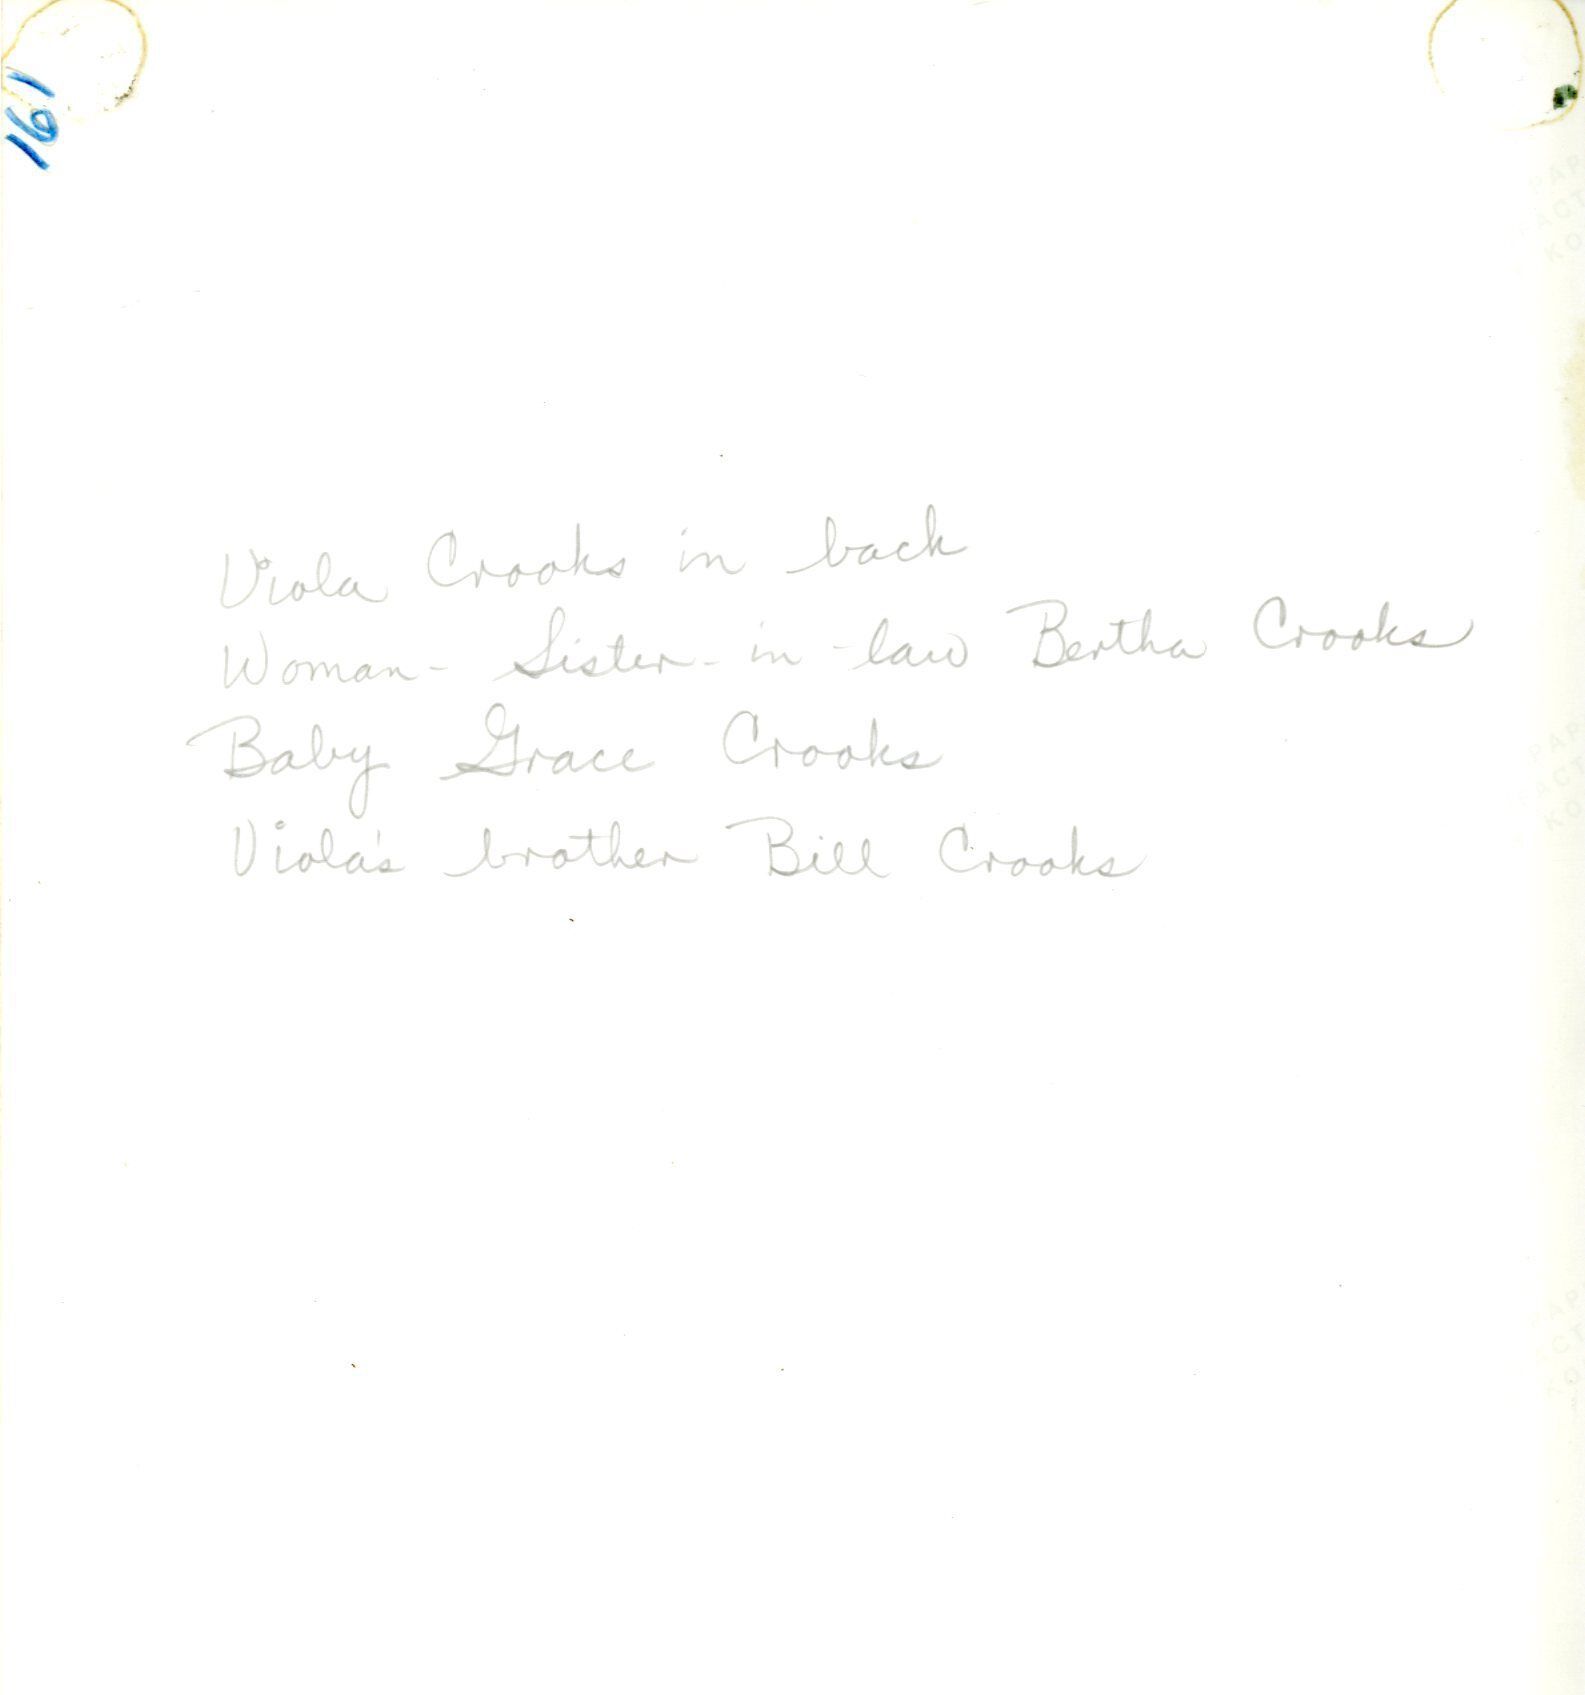 161
Viola Crooks in back
Woman - Sister-in-law Bertha Crooks
Baby Grace Crooks
Viola's brother Bill Crooks